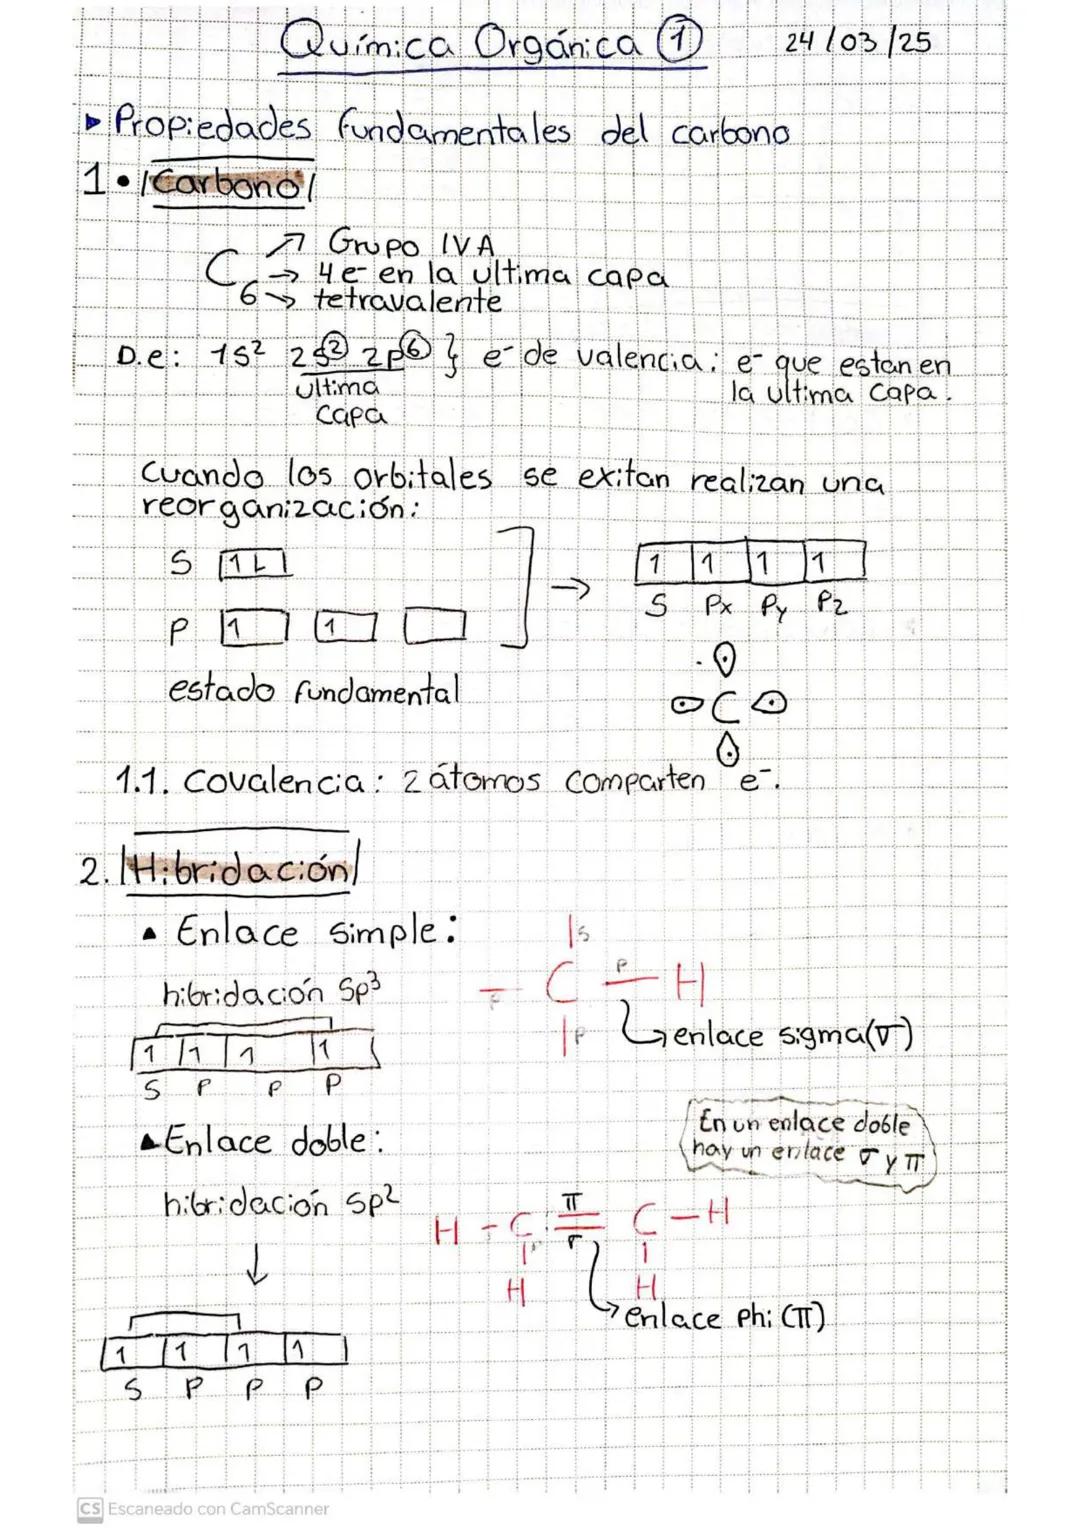 Química Orgánica ① 24/03/25
▸ Propiedades fundamentales del carbono
1• Carbono
C₆ ↗ Grupo IVA
→ 4 e⁻ en la ultima capa
→ tetravalente
D.e: 1s² 2s² 2p⁶ } e⁻ de valencia: e⁻ que estan en
ultima la ultima capa.
capa
cuando los orbitales se exitan realizan una
reorganización:
S 1 L → 1 1 1 1
S Px Py Pz
P 1 1
estado fundamental
C
1.1. Covalencia: 2 átomos comparten e⁻.
2. Hibridación
▲ Enlace simple:
s
hibridación Sp³
C P H
P
enlace sigma(σ)
1 1 1 1
S P P P
En un enlace doble
hay un enlace σ y π
▲ Enlace doble:
hibridación Sp²
π
H - C = C - H
σ
H H
↓
enlace phi (π)
1 1 1 1
S P P P
CS Escaneado con CamScanner